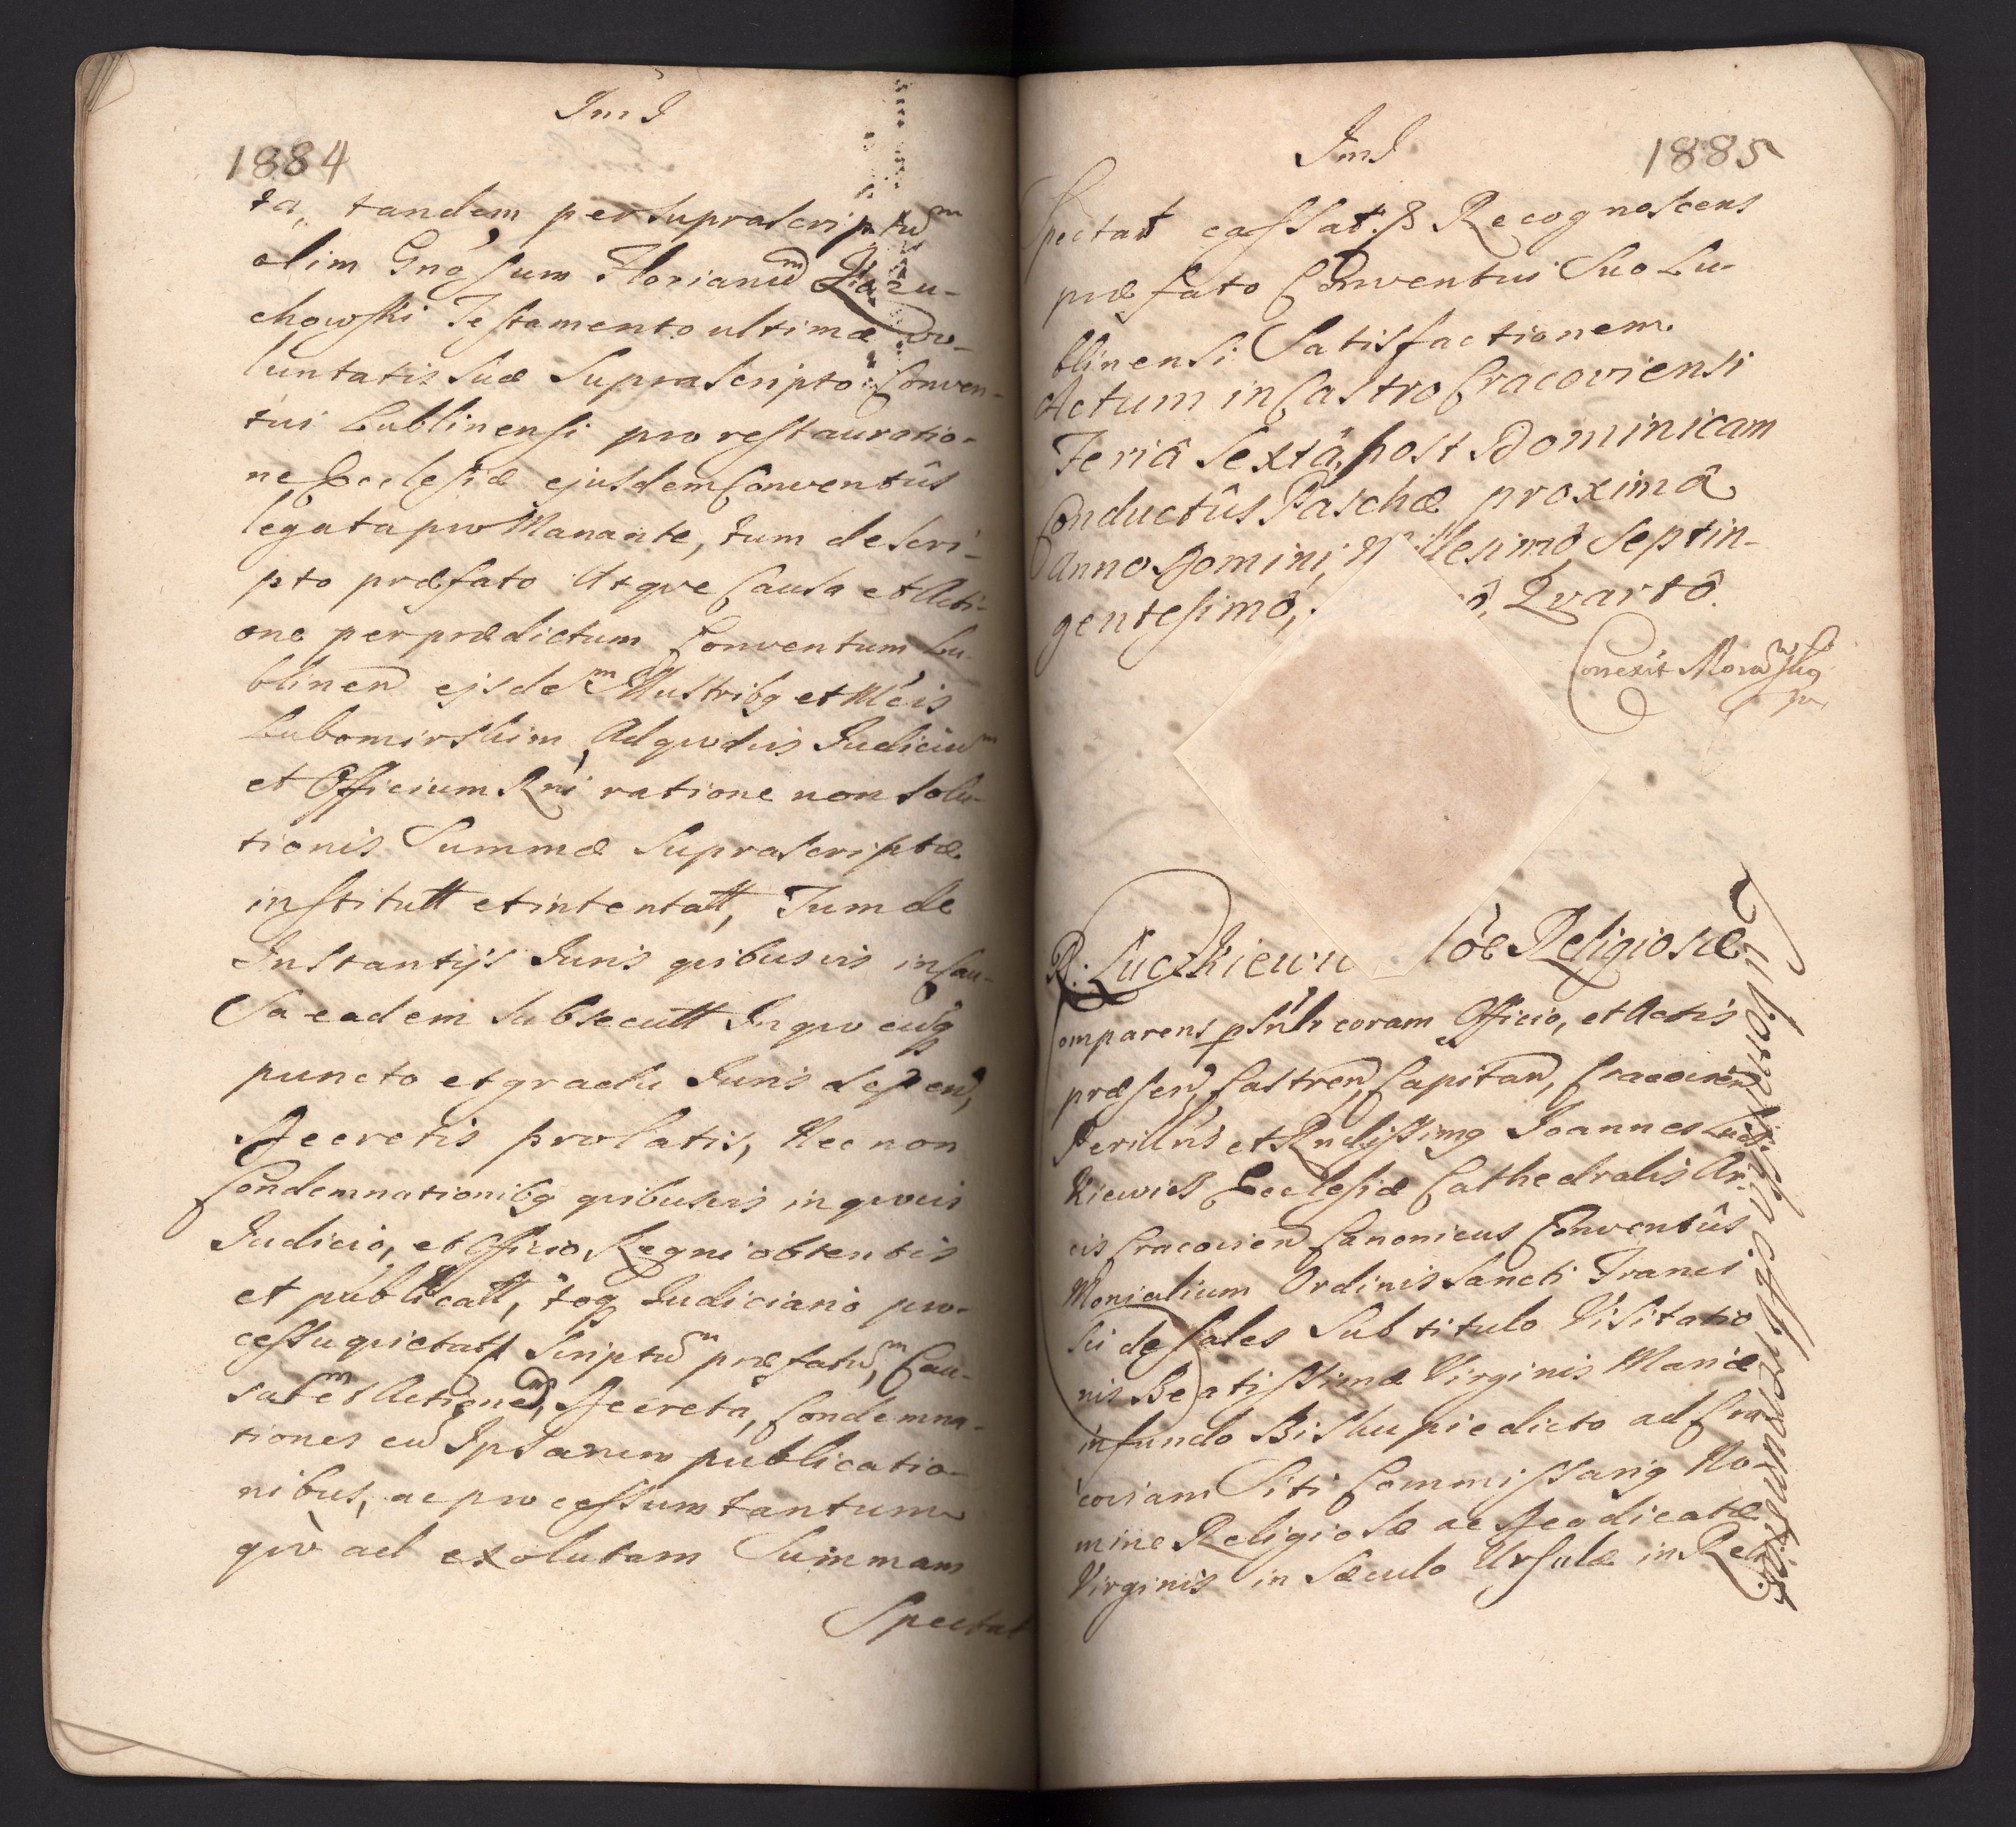 1884
ta, tandem per Suprascriptũ
olim Gnosum Florianũ
chowski Testamento ultimæ vo-
luntatis Suæ Suprascripto Conven-
tui Lublinensi pro restauratio-
ne Ecclesiæ ejusdem Conventûs
legata pro Manante, tum de Scri-
pto præfato Atqve Causa et Acti-
one per prædictum Conventum Lu-
blinen ejsdem Illustribq et
Lubomirskim, Ad qvodvis Judiciũ
et Officium Rni ratione non Solu-
tionis Summæ Suprascriptæ
institutt et intentatt, Tum de
Instantijs Juris qvibusvis in Cau-
Sa eadem Subsecutt In qvo cunq
puncto et gradu Juris
Decretis prolatis, Nec non
Condemnationibq qvibusvis in qvovis
Judicio, et Officio Regni obtentis
et publicatt, toq Judiciario pro-
cessu qvietatt Scriptũ præfatũ, Cau-
sam et Actionem, Decreta, Condemna-
tiones cũ Ipsarum publicatio-
nibus, ac processum tantum
qvò ad exolutam Summam
Spectat
1885
Spectatt cassat. & Recognoscens
præfato Conventui Suo Lu-
blinensi Satisfactionem
Actum in Castro Cracoviensi
Feriâ Sextâ, post Dominicam
Conductûs Paschæ proximâ
Anno Domini, Millesimô Septin-
gentesimô, Qvartô.
Conexit
R. Religiosæ
Comparens coram Officio, et Actis
præsen, Castren, Capitan, Cracovien
Perillũs et Rndissimq Joannes Lucz-
kiewicz Ecclesiæ Cathedralis Ar-
cis Cracovien Canonicus Conventûs
Monialium Ordinis Sancti Franci-
sci de Sales Sub titulo Visitatio-
nis Beatissimæ Virginis Mariæ
in fundo Biskupie dicto ad Cra-
coviam Siti Commissariq No-
mine Religiosæ ac Deo dicatæ
Virginis in Sæculo Ursulæ in Reli-